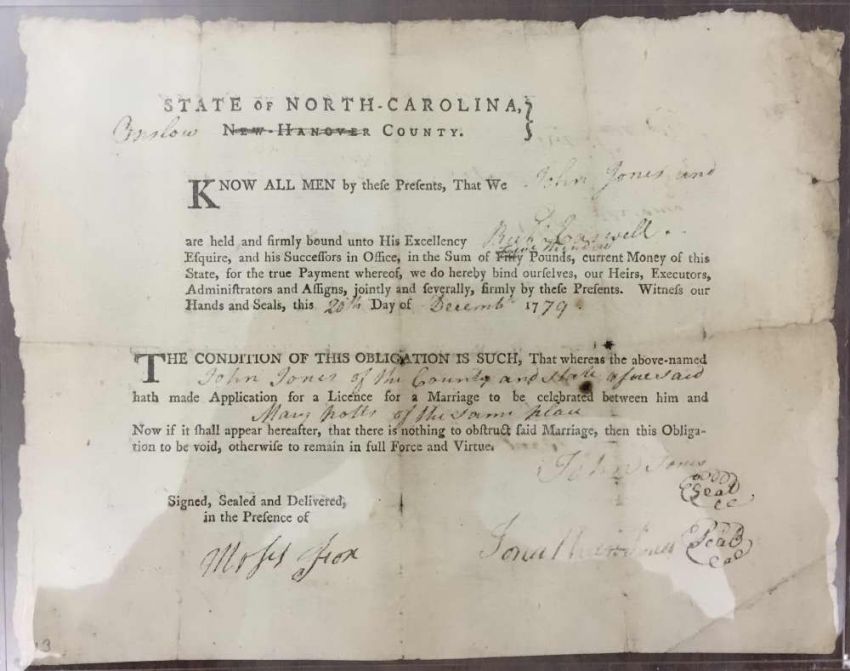 STATE OF NORTH-CAROLINA,
Onslow NEW-HANOVER COUNTY.
KNOW ALL MEN by theſe Preſents, That We John Jones and
are held and firmly bound unto His Excellency Richd Caswell
Eſquire, and his Succeſſors in Office, in the Sum of Fifty Pounds, current Money of this
State, for the true Payment whereof, we do hereby bind ourſelves, our Heirs, Executors,
Adminiſtrators and Aſſigns, jointly and ſeverally, firmly by theſe Preſents. Witneſs our
Hands and Seals, this 20th Day of Decembr 1779.
THE CONDITION OF THIS OBLIGATION IS SUCH, That whereas the above-named
John Jones of the County and State aforesaid
hath made Application for a Licence for a Marriage to be celebrated between him and
Mary potts of the same place
Now if it ſhall appear hereafter, that there is nothing to obſtruct ſaid Marriage, then this Obliga-
tion to be void, otherwiſe to remain in full Force and Virtue.
John Jones
Seal
Signed, Sealed and Delivered,
in the Preſence of
Moses Fox
Seal
3